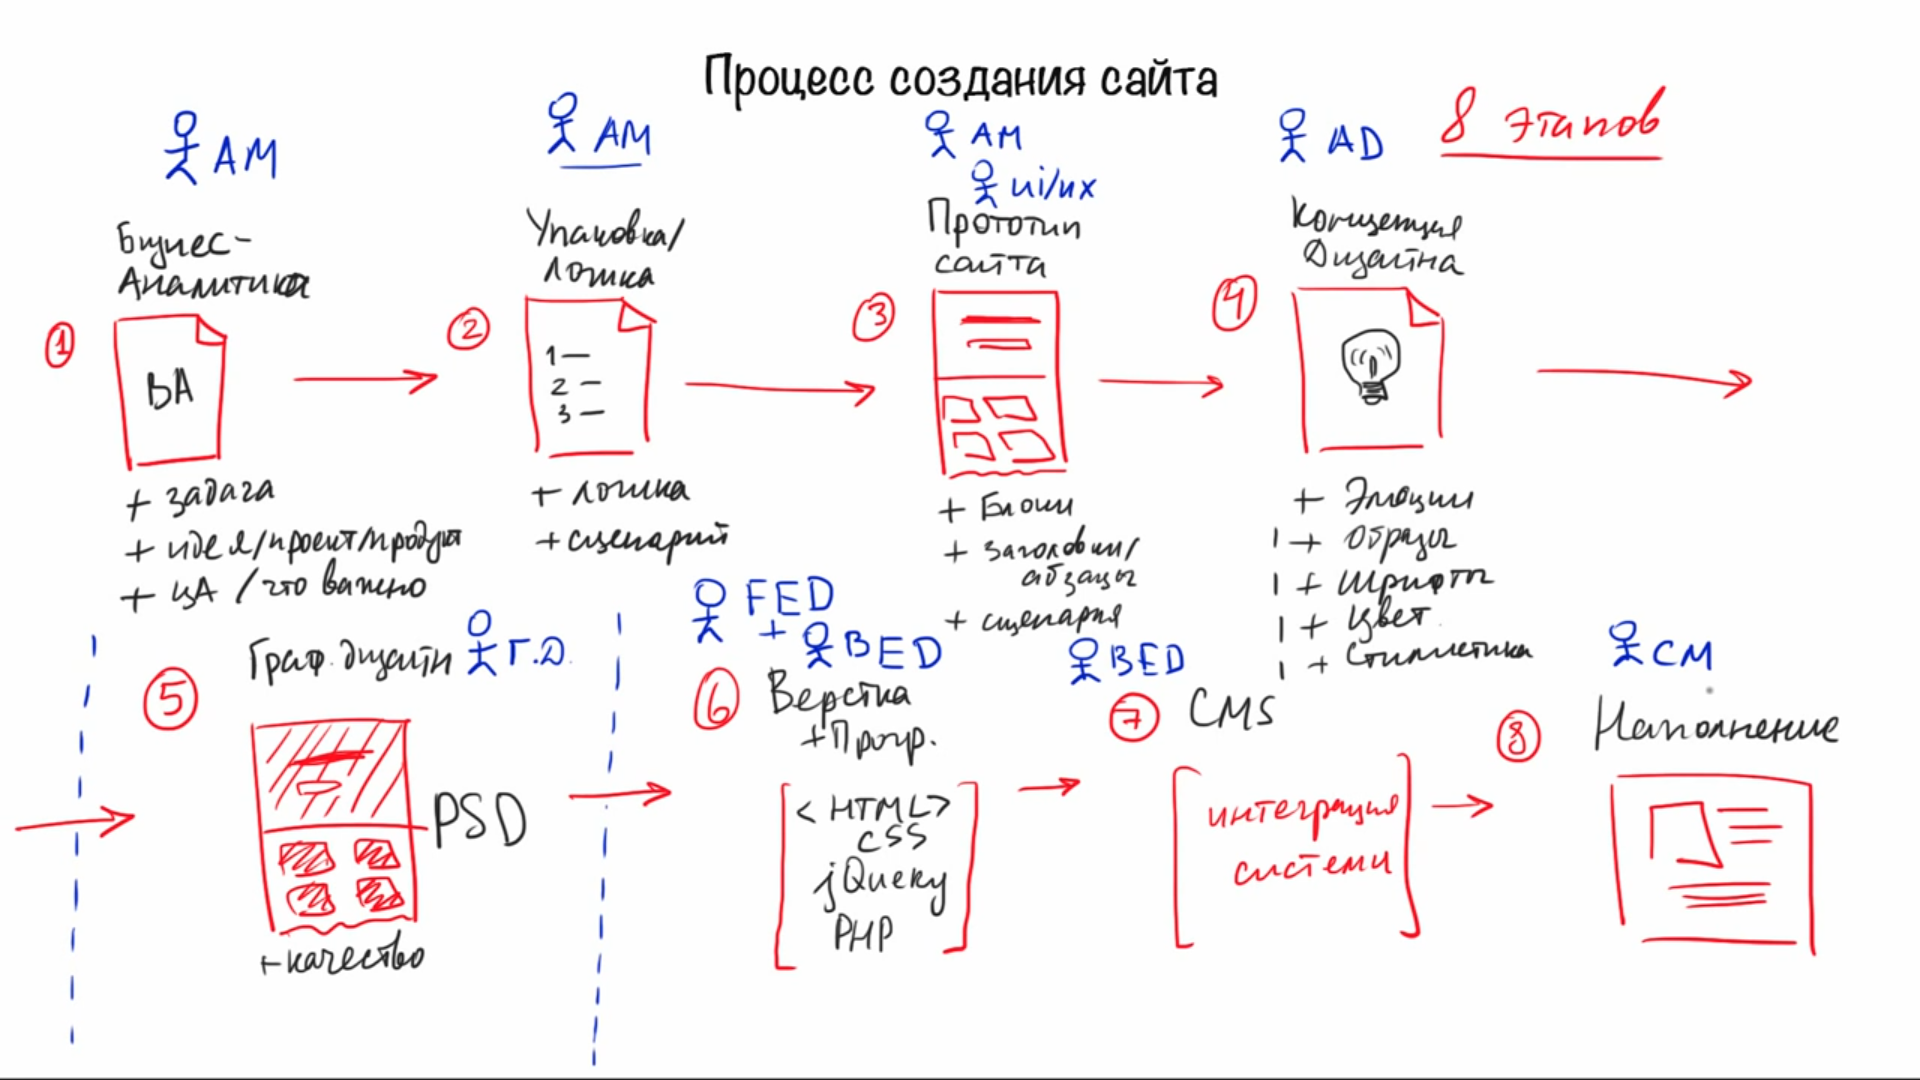 Процесс создания сайта
8 этапов
АМ
Бизнес-
Аналитика
1
BA
+ задача
+ идея/проект/продукт
+ ЦА / что важно
АМ
Упаковка/
логика
2
1 —
2 —
3 —
+ логика
+ сценарий
АМ
ui/ux
Прототип
сайта
3
+ Блоки
+ заголовки/
абзацы
+ сценария
AD
Концепция
Дизайна
4
+ Эмоции
+ Образы
+ Шрифты
+ Цвет
+ Стилистика
Граф. дизайн
Г.Д.
5
PSD
+ качество
FED
+ BED
6
Верстка
+ Прогр.
< HTML>
CSS
jQuery
PHP
BED
7
CMS
интеграция
системи
CM
8
Наполнение